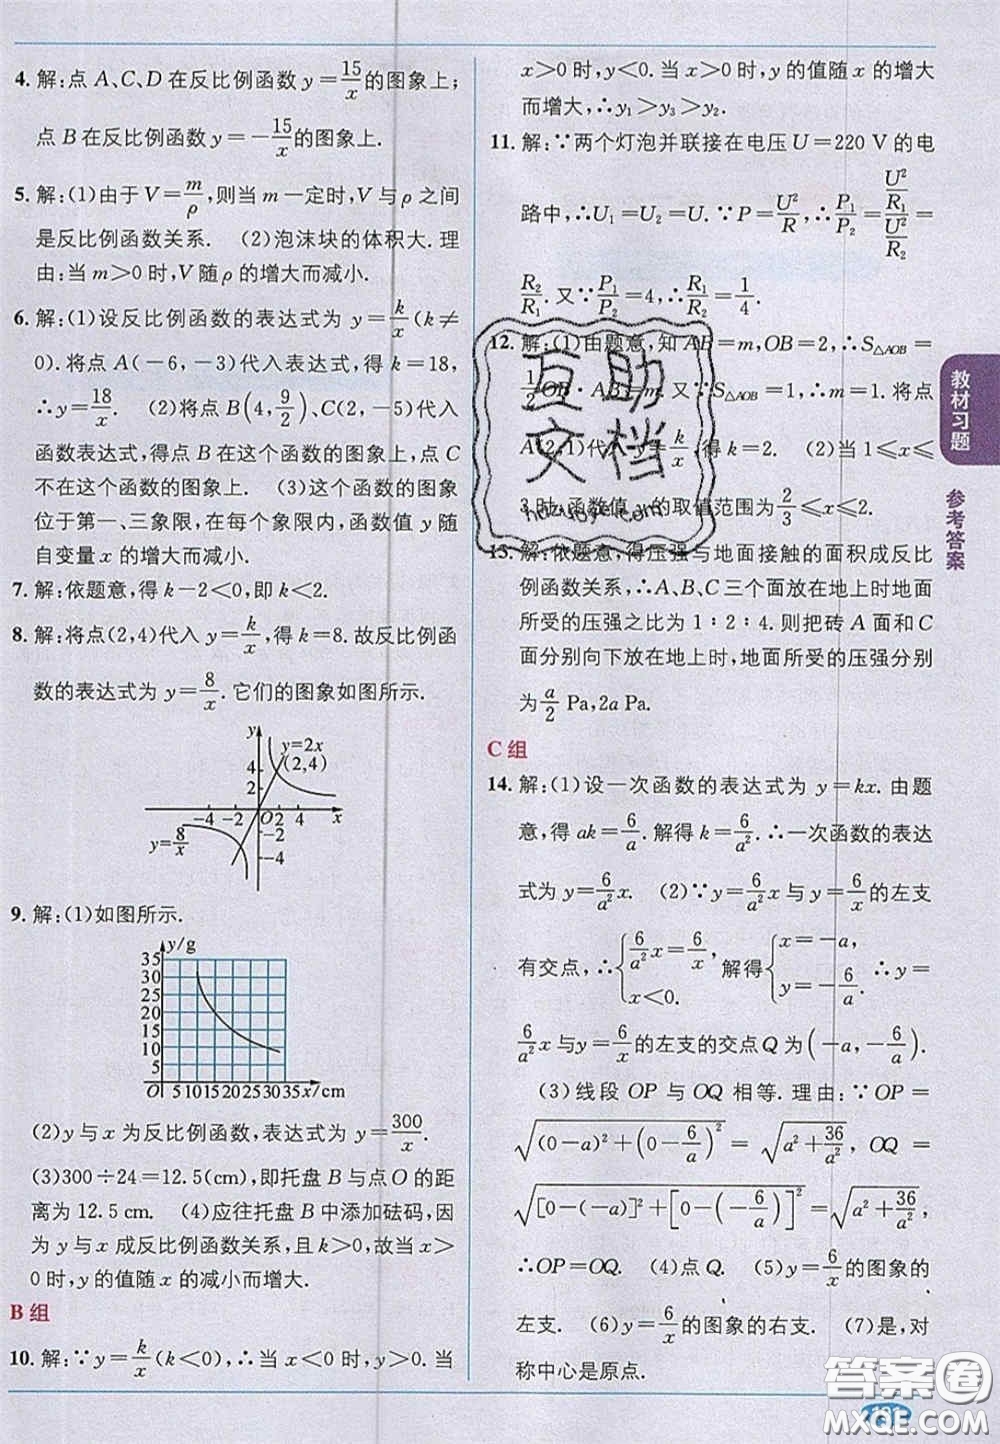 4. 解:点 A、C、D 在反比例函数 y=15/x 的图象上;
点 B 在反比例函数 y=-15/x 的图象上.
5. 解:(1)由于 V=m/ρ,则当 m 一定时,V 与 ρ 之间
是反比例函数关系. (2)泡沫块的体积大. 理
由:当 m>0 时,V 随 ρ 的增大而减小.
6. 解:(1)设反比例函数的表达式为 y=k/x(k≠
0). 将点 A(-6,-3)代入表达式,得 k=18,
∴y=18/x. (2)将点 B(4,9/2),C(2,-5)代入
函数表达式,得点 B 在这个函数的图象上,点 C
不在这个函数的图象上. (3)这个函数的图象
位于第一、三象限,在每个象限内,函数值 y 随
自变量 x 的增大而减小.
7. 解:依题意,得 k-2<0,即 k<2.
8. 解:将点(2,4)代入 y=k/x,得 k=8. 故反比例函
数的表达式为 y=8/x. 它们的图象如图所示.
y
y=2x
(2,4)
4
2
-4 -2 O 2 4 x
-2
-4
y=8/x
9. 解:(1)如图所示.
y/g
35
30
25
20
15
10
5
O 5 10 15 20 25 30 35 x/cm
(2)y 与 x 为反比例函数,表达式为 y=300/x.
(3)300÷24=12.5(cm),即托盘 B 与点 O 的距
离为 12.5 cm. (4)应往托盘 B 中添加砝码,因
为 y 与 x 成反比例函数关系,且 k>0,故当 x>
0 时,y 的值随 x 的减小而增大.
B 组
10. 解:∵y=k/x(k<0),∴当 x<0 时,y>0. 当
x>0 时,y<0. 当 x>0 时,y 的值随 x 的增大
而增大,∴y₁>y₃>y₂.
11. 解:∵两个灯泡并联接在电压 U=220 V 的电
路中,∴U₁=U₂=U. ∵P=U²/R,∴P₁/P₂=(U²/R₁)/(U²/R₂)=
R₂/R₁. 又∵P₁/P₂=4,∴R₂/R₁=1/4.
12. 解:(1)由题意,知 AB=m,OB=2,∴S△AOB=
1/2 OB·AB=m. 又∵S△AOB=1,∴m=1. 将点
A(2,1)代入 y=k/x,得 k=2. (2)当 1≤x≤
3 时,函数值 y 的取值范围为 2/3≤x≤2.
13. 解:依题意,得压强与地面接触的面积成反比
例函数关系,∴A、B、C 三个面放在地上时地面
所受的压强之比为 1∶2∶4. 则把砖 A 面和 C
面分别向下放在地上时,地面所受的压强分别
为 a/2 Pa,2a Pa.
C 组
14. 解:(1)设一次函数的表达式为 y=kx. 由题
意,得 ak=6/a. 解得 k=6/a². ∴一次函数的表达
式为 y=6/a² x. (2)∵y=6/a² x 与 y=6/x 的左支
有交点,∴{6/a² x=6/x, x<0. 解得{x=-a, y=-6/a. ∴y=
6/a² x 与 y=6/x 的左支的交点 Q 为(-a,-6/a).
(3)线段 OP 与 OQ 相等. 理由:∵OP=
√((0-a)²+(0-6/a)²)=√(a²+36/a²),OQ=
√([0-(-a)]²+[0-(-6/a)]²)=√(a²+36/a²),
∴OP=OQ. (4)点 Q. (5)y=6/x 的图象的
左支. (6)y=6/x 的图象的右支. (7)是,对
称中心是原点.
教材习题
参考答案
互助
文档
huzuoye.com
答案圈
MXQE.COM